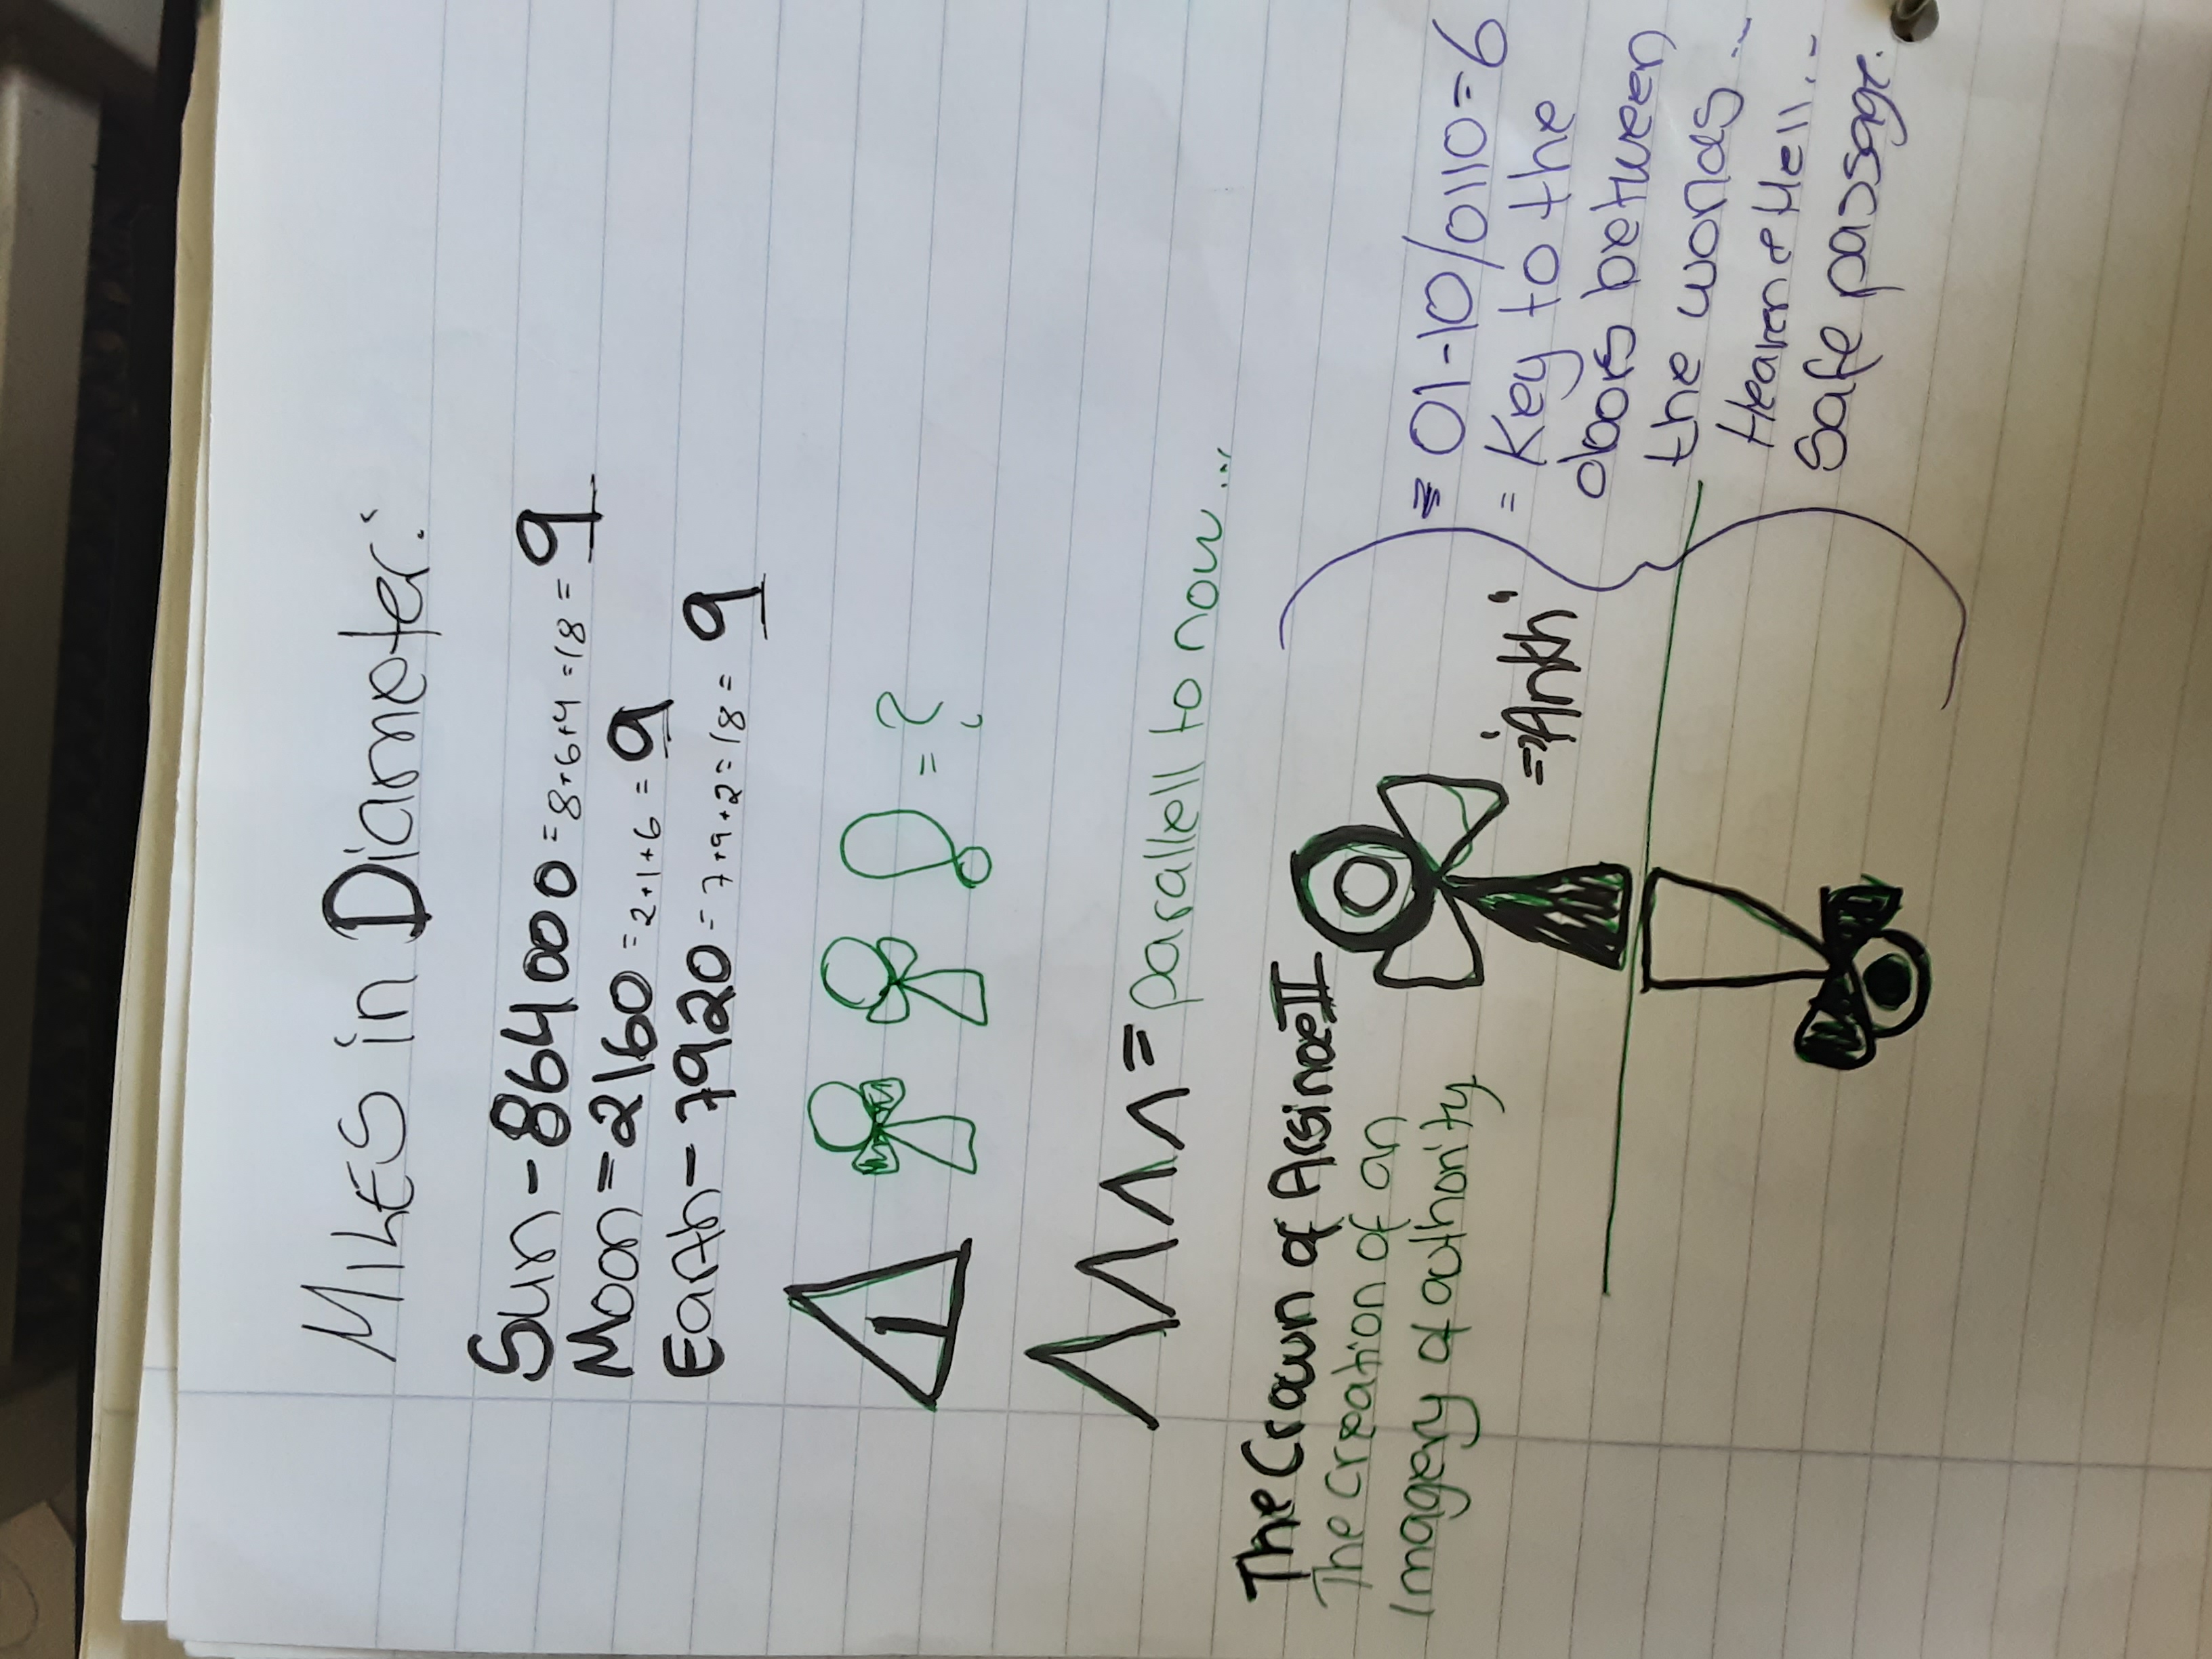 MilES in Diameter:
Sun - 864000 = 8+6+4 = 18 = 9
Moon = 2160 = 2+1+6 = 9
Earth - 7920 = 7+9+2 = 18 = 9
= ?
= parallell to now...
The Crown of Arsinoe II
The creation of an
Imagery of authority
= 'Ankh'
= 01-10/0110 = 6
= Key to the
doors between
the worlds...
Heaven & Hell...
Safe passage.